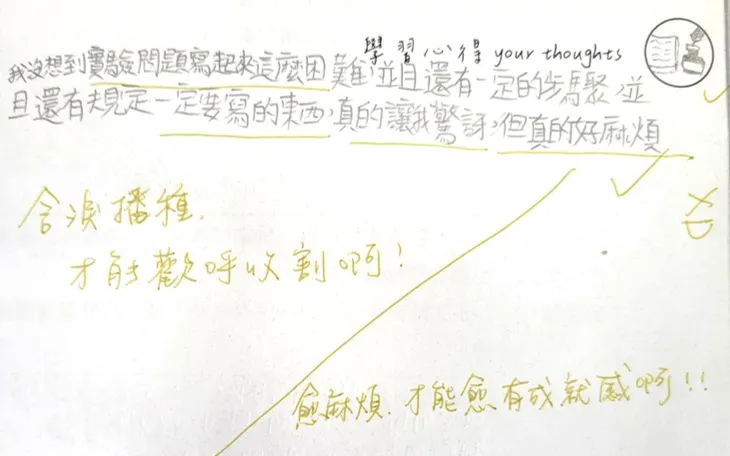 學習心得 your thoughts
我沒想到實驗問題寫起來這麼困難,並且還有一定的步驟,並
且還有規定一定要寫的東西,真的讓我驚訝,但真的好麻煩
XD
含淚播種,
才能歡呼收割啊!
愈麻煩,才能愈有成就感啊!!